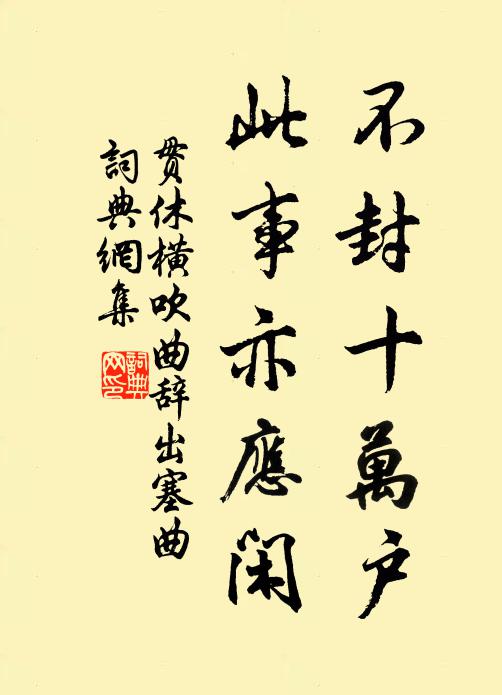 不封十萬户
此事亦應闲
贯休横吹曲辞出塞曲
詞典網集
詞典网印